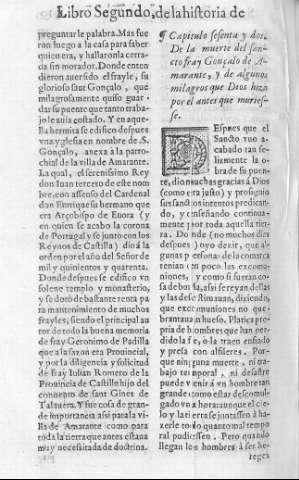 Libro Segundo, de la historia de
preguntar le palabra. Mas fue
ron luego a la casa para saber
quien era, y hallaron la cerra-
da sin morador. Donde enten
dieron auer sido el frayle, su
glorioso sanct Gonçalo, que
milagrosamente quiso guar-
dar su puente que tanto traba-
jo le auia costado. Y en aque-
lla hermita se edifico despues
vna yglesia en nombre de S.
Gonçalo, anexa a la parro-
chial de la villa de Amarante.
La qual, el serenissimo Rey
don Iuan tercero de este nom
bre, con assenso del Cardenal
don Enrrique su hermano que
era Arçobispo de Euora (y
en quien se acabo la corona
de Portugal y se junto con los
Reynos de Castilla) dio á la
orden por el año del Señor de
mil y quinientos y quarenta.
Donde despues se edifico vn
solene templo y monasterio,
y se doto de bastante renta pa
ra mantenimiento de muchos
frayles, siendo el principal au
tor de todo la buena memoria
de fray Geronimo de Padilla
que a la sazon era Prouincial,
y por la diligencia y solicitud
de fray Iulian Romero de la
Prouincia de Castilla hijo del
conuento de sanct Gines de
Talauera. Y fue cosa de gran-
de importancia assi para la vi-
lla de Amarante como para
toda la tierra que antes estaua
muy necessitada de doctrina.
¶ Capitulo sesenta y dos.
De la muerte del san-
cto fray Gonçalo de A-
marante, y de algunos
milagros que Dios hizo
por el antes que muries-
se.
DEspues que el
Sancto vuo a-
cabado tan fe-
lizmente la o-
bra de su puen-
te, dio muchas gracias á Dios
(como era justo) y prosiguio
sus sanctos intentos predican-
do, y enseñando continua-
mente por toda aquella tierra.
Donde (no muchos dias
despues) oyo dezir, que al-
gunas personas de la comarca
tenian en poco las excomu-
niones, y como si fuera co-
sa de burla, assi se reyan dellas
y las desestimauan, diziendo,
que excomuniones no que-
brantauan hueso. Platica pro
pria de hombres que han per-
dido la fe, o la traen ensiado
y presa con alfileres. Por-
que ninguna muerte, ni tra-
bajo temporal, ni desastre
puede venir á vn hombre tan
grande como estar descomul-
gado vn hora: aunque el cie-
lo y la tierra se juntassen á ha-
zerle todo quanto mal tempo
ral pudiessen. Pero quando
llegan los hombres á ser he-
reges